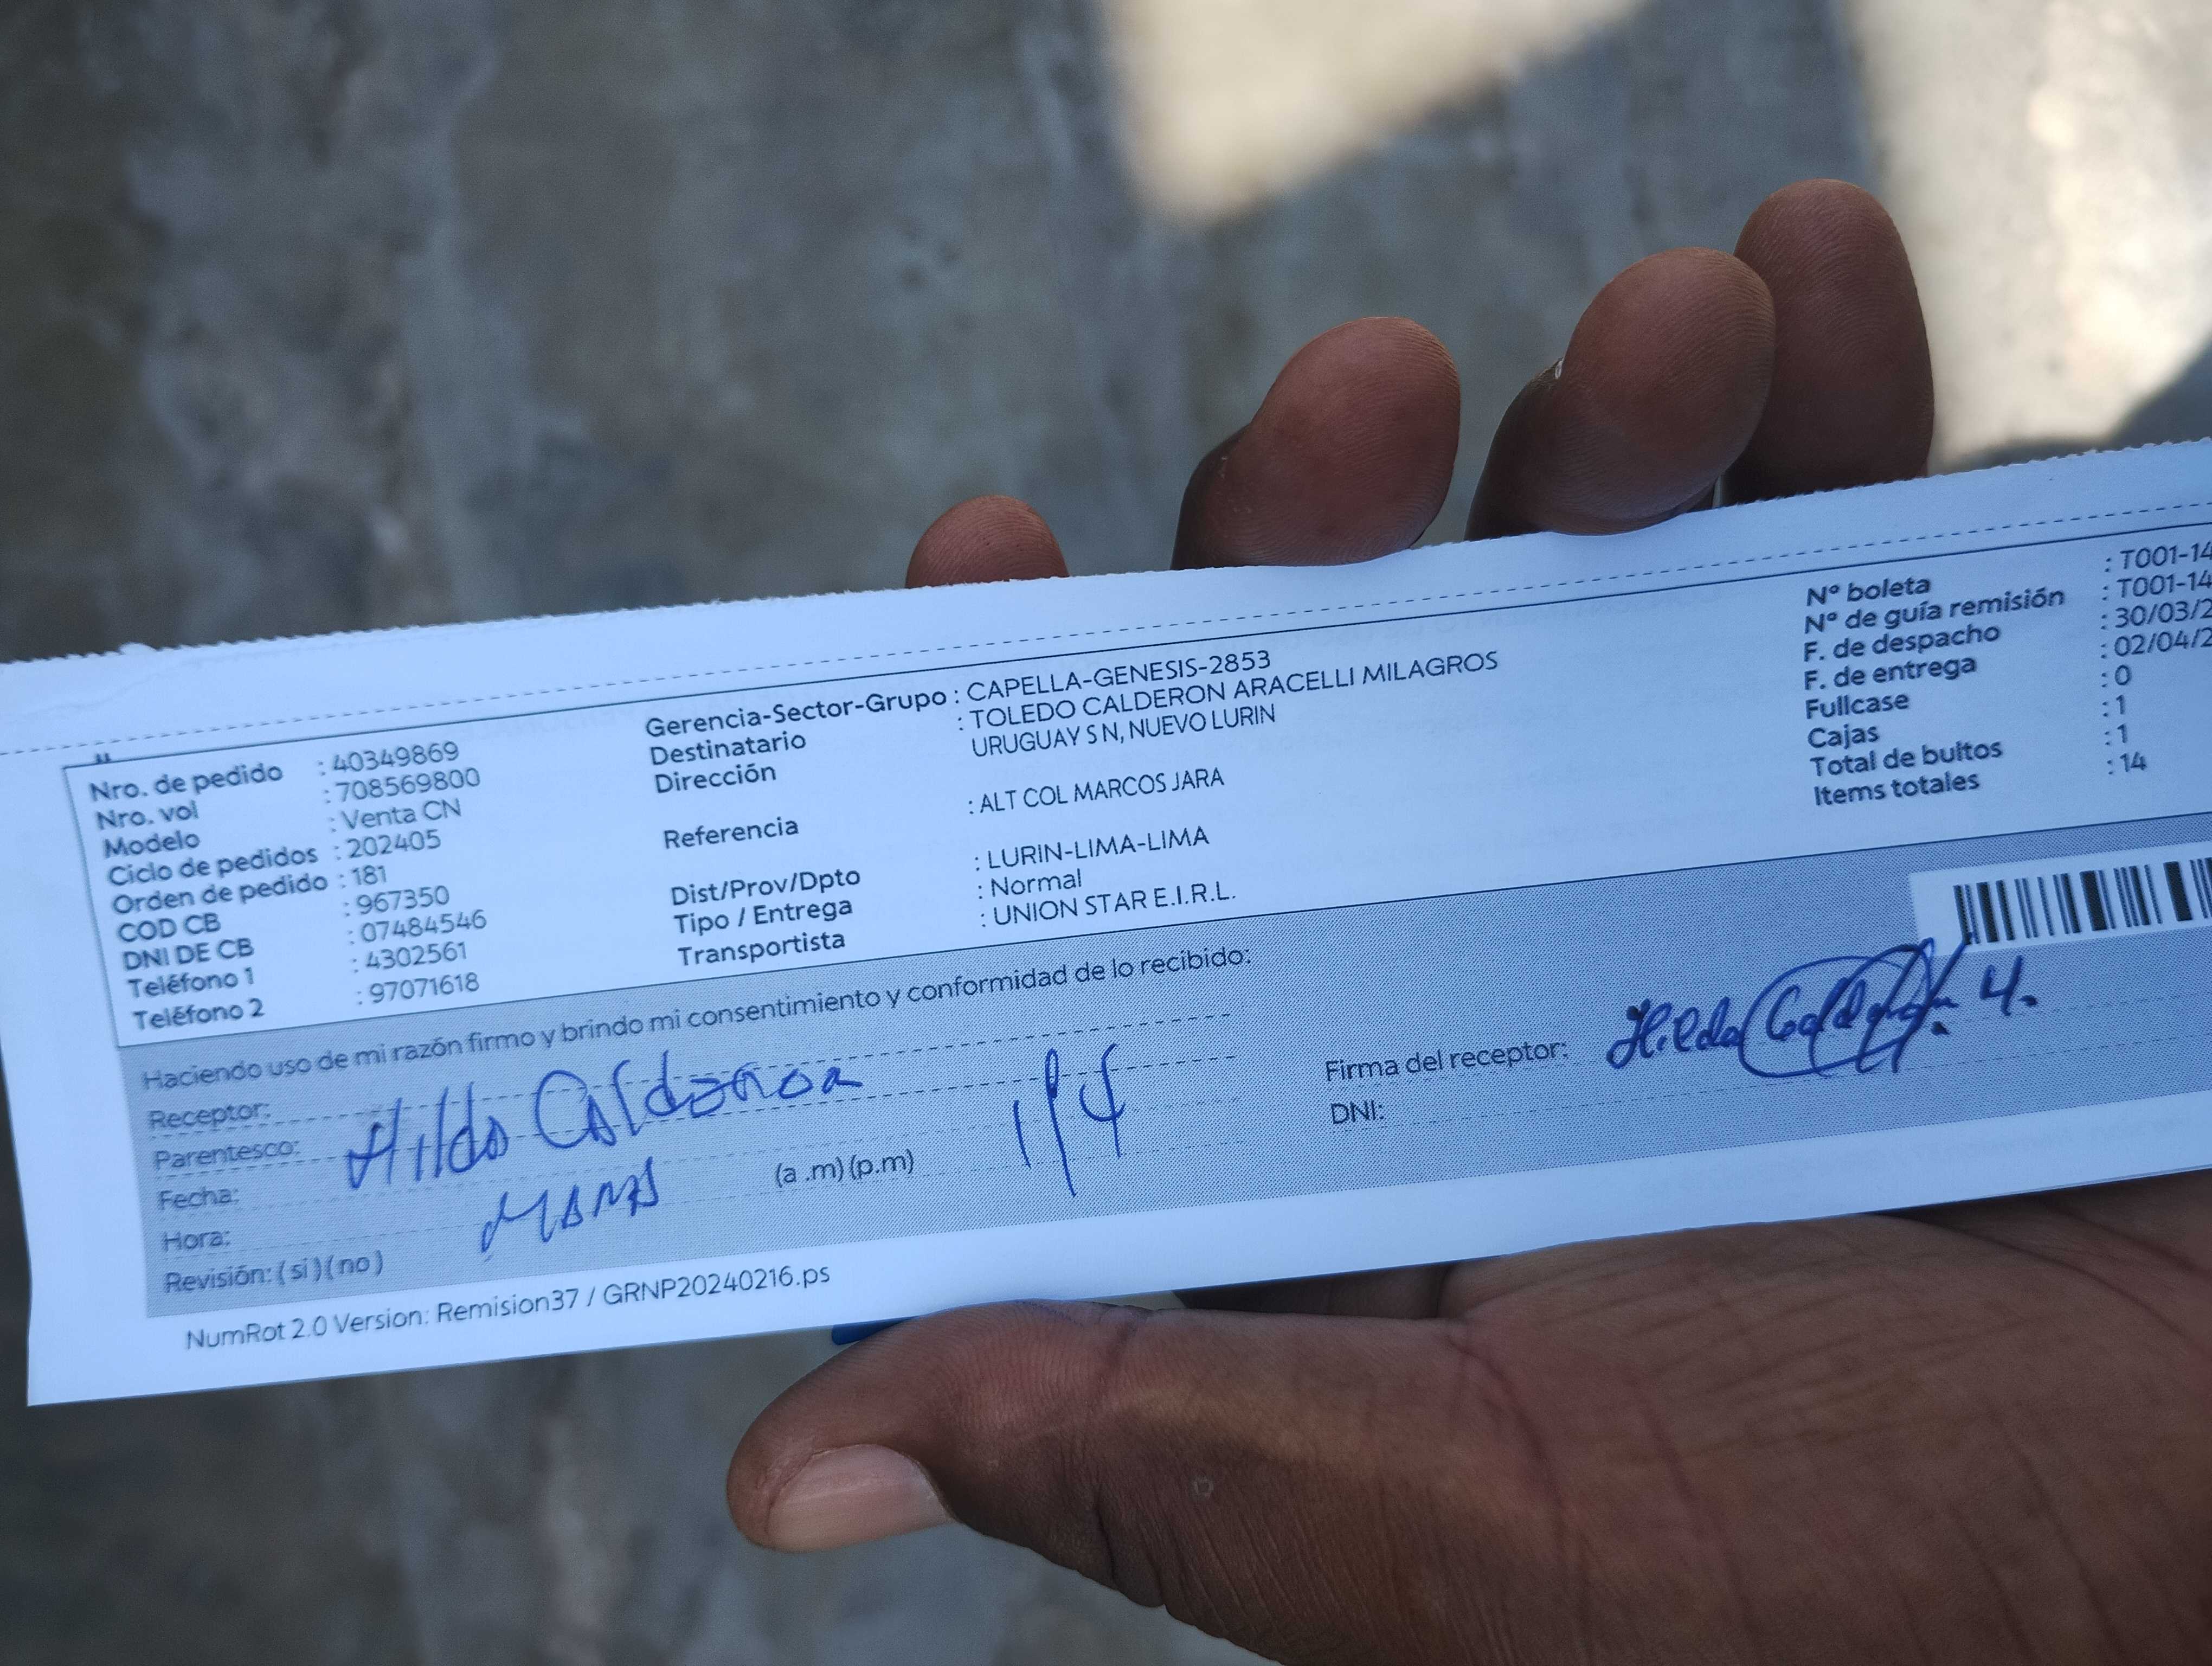 Nro. de pedido : 40349869
Nro. vol : 708569800
Modelo : Venta CN
Ciclo de pedidos : 202405
Orden de pedido : 181
COD CB : 967350
DNI DE CB : 07484546
Teléfono 1 : 4302561
Teléfono 2 : 97071618
Gerencia-Sector-Grupo : CAPELLA-GENESIS-2853
Destinatario : TOLEDO CALDERON ARACELLI MILAGROS
Dirección URUGUAY S N, NUEVO LURIN
Referencia : ALT COL MARCOS JARA
Dist/Prov/Dpto : LURIN-LIMA-LIMA
Tipo / Entrega : Normal
Transportista : UNION STAR E.I.R.L.
Nº boleta : T001-14
Nº de guía remisión : T001-14
F. de despacho : 30/03/2
F. de entrega : 02/04/2
Fullcase : 0
Cajas : 1
Total de bultos : 1
Items totales : 14
Haciendo uso de mi razón firmo y brindo mi consentimiento y conformidad de lo recibido:
Receptor:
Parentesco: Hilda
Fecha:
Hora: (a .m) (p.m)
Revisión: ( si ) ( no )
Firma del receptor: Hilda
DNI:
NumRot 2.0 Version: Remision37 / GRNP20240216.ps